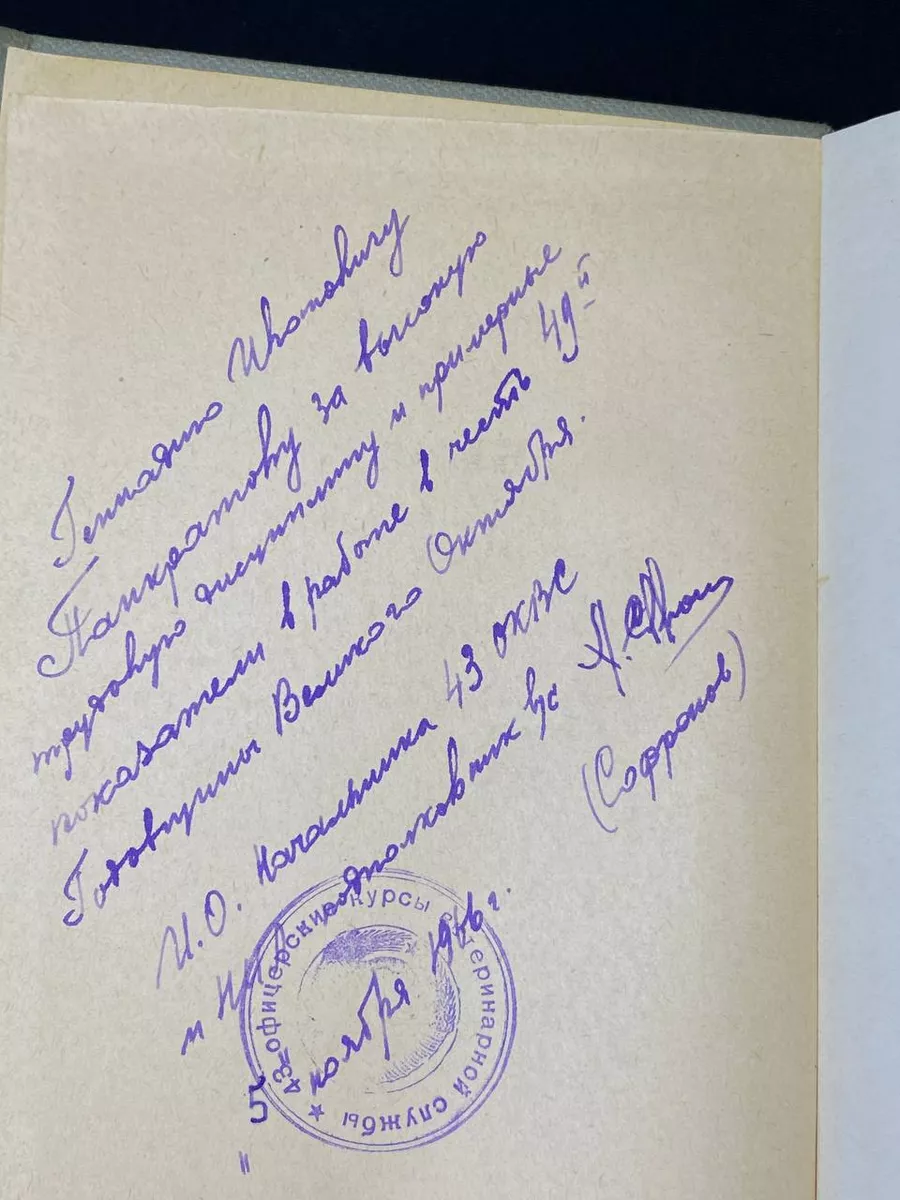 Геннадию Ипатовичу
Панкратову за высокую
трудовую дисциплину и примерные
показатели в работе в честь 49-й
Годовщины Великого Октября.
И.О. Начальника 43 ОКВС
подполковник в/с
(Софронов)
"5 ноября 1966 г.
43 офицерские курсы ветеринарной службы